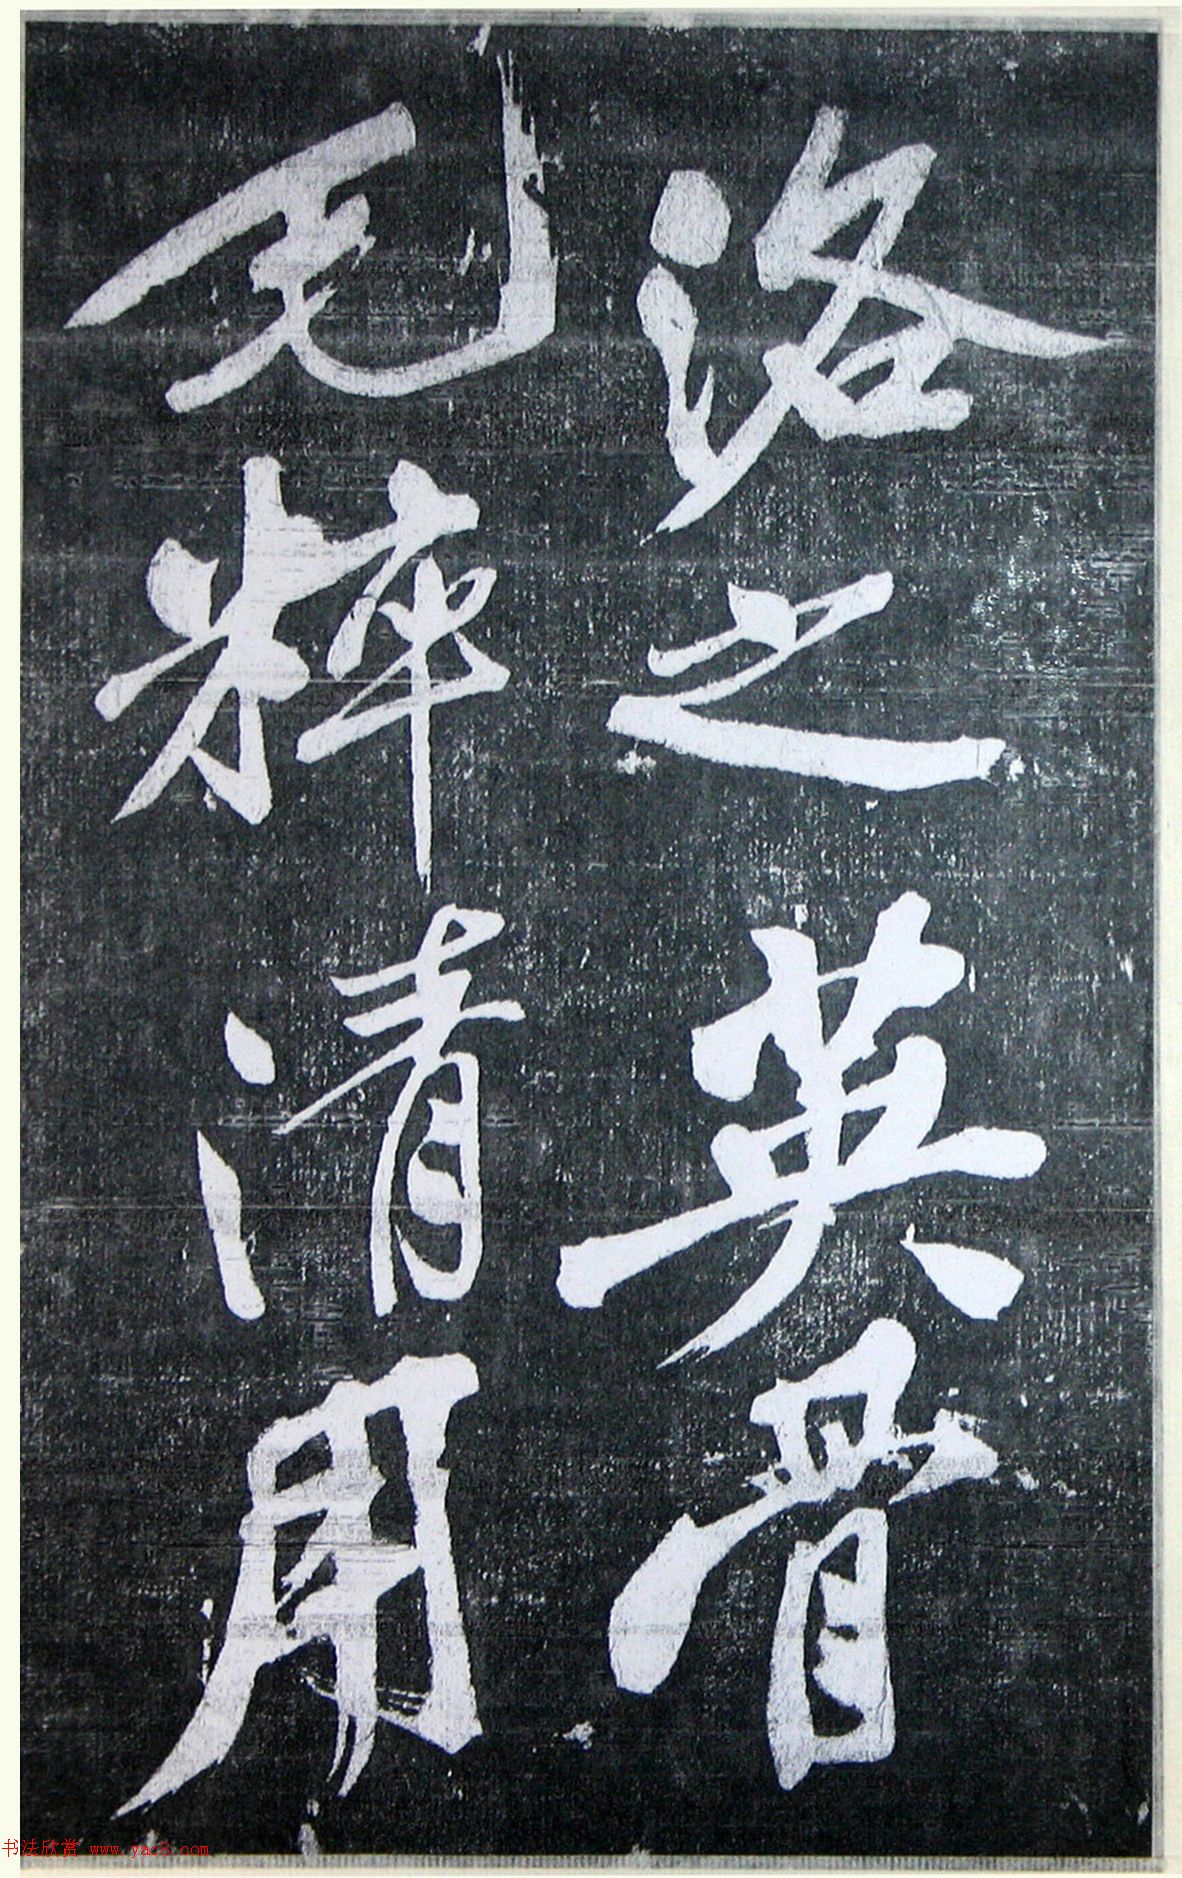 洛之英骨
毛粹清用
书法欣赏 www.yac8.com